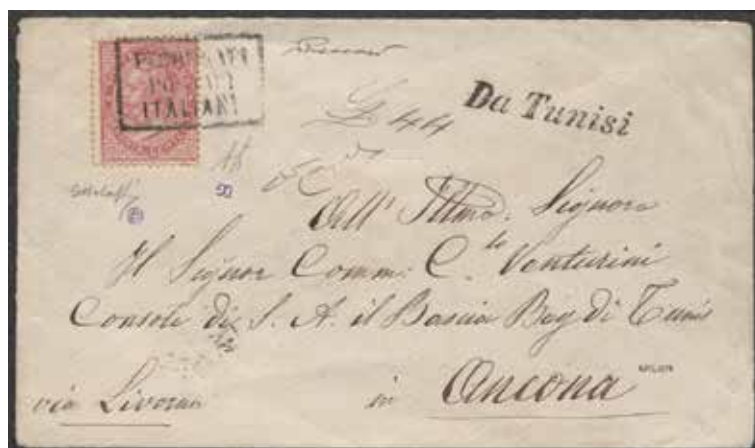 PIROSCAFI
POSTALI
ITALIANI
Da Tunisi
£ 44
All' Illmo. Signore
Il Signor Comm: C.te Venturini
Console di S. A. il Bascia Bey di Tunis
via Livorno in Ancona